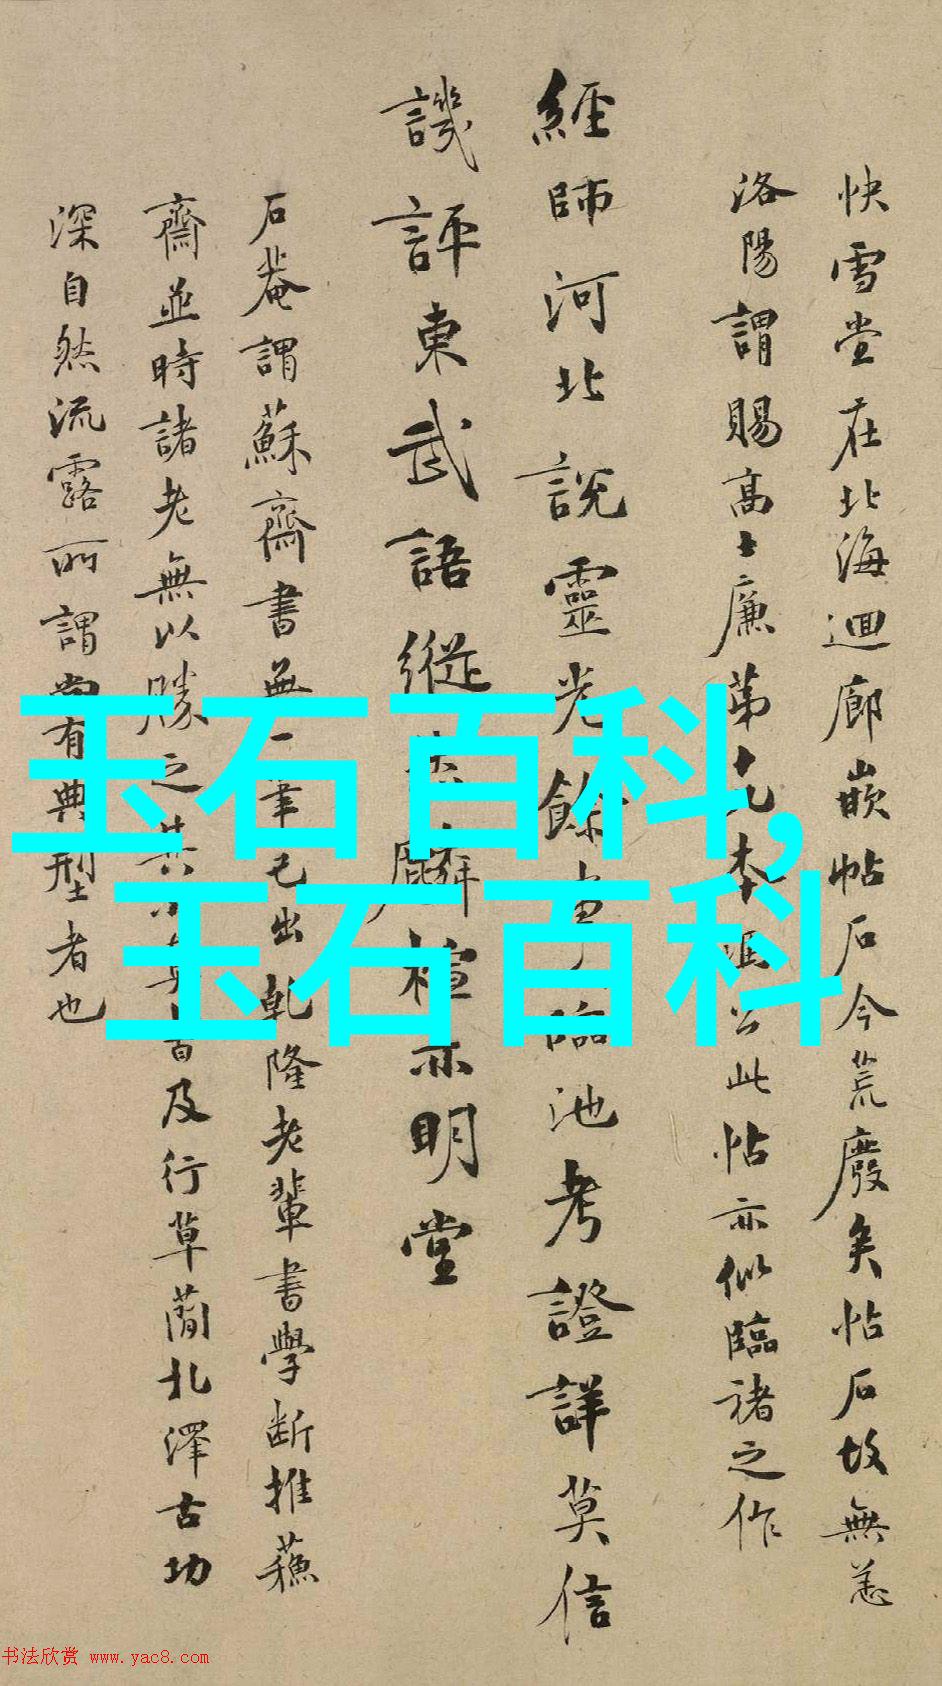 快雪堂在北海迴廊嵌帖石今荒廢矣帖石故無恙
洛陽謂賜高士廉第十九本
此帖亦似臨諸之作
經師河北說靈光餘事臨池考證詳莫信
譏評東武語縱
麟楦亦明堂
石菴謂蘇齋書無一筆已出乾隆老輩書學斷推蘓
齋並時諸老無以勝之其
及行草蕳札澤古功
深自然流露所謂尚有典型者也
玉石百科,
玉石百科
书法欣赏 www.yac8.com